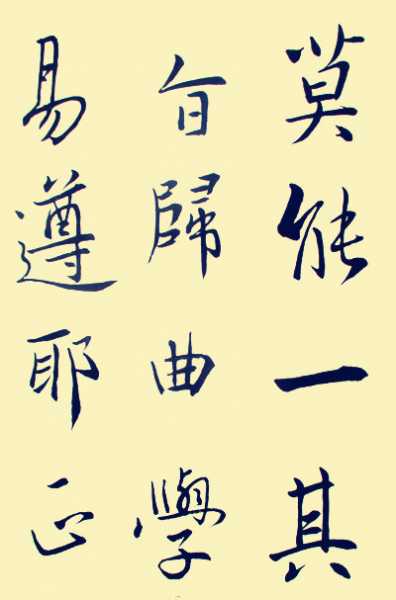 莫能一其
旨歸曲學
易遵耶正